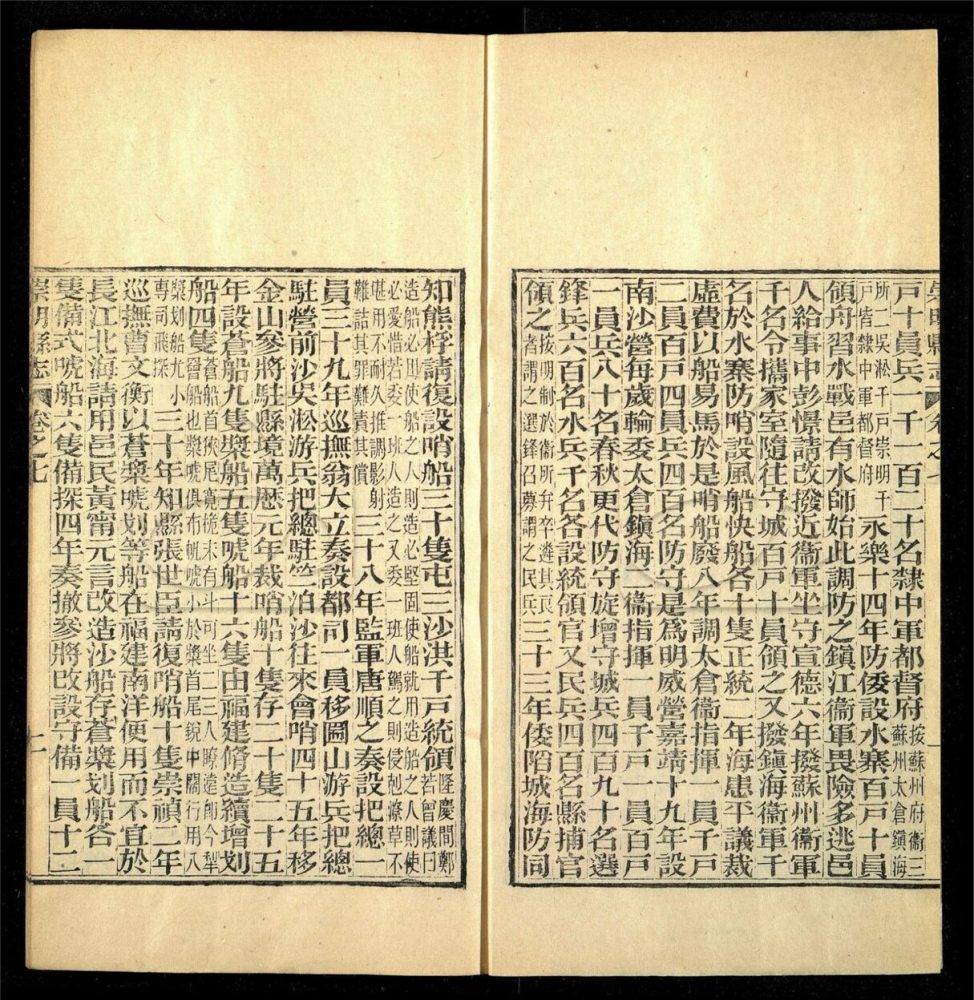 崇明縣志 卷之七
戸十員兵一千一百二十名隸中軍都督府按蘇州府衞三蘇州太倉鎮海
所二吳淞千戸崇明千戸皆隸中軍都督府永樂十四年防倭設水寨百戸十員
領舟習水戰邑有水師始此調防之鎮江衞軍畏險多逃邑
人給事中彭憬請改撥近衞軍坐守宣德六年撥蘇州衞軍
千名令攜家室隨往守城百戸十員領之又撥鎮海衞軍千
名於水寨防哨設風船快船各十隻正統二年海患平議裁
虛費以船易馬於是哨船廢八年調太倉衞指揮一員千戸
二員百戸四員兵四百名防守是爲明威營嘉靖十九年設
南沙營每歲輪委太倉鎮海二衞指揮一員千戸一員百戸
一員兵八十名春秋更代防守旋增守城兵四百九十名選
鋒兵六百名水兵千名各設統領官又民兵四百名縣捕官
領之按明制於衞所弁卒遴其良者謂之選鋒召募謂之民兵三十三年倭陷城海防同
知熊桴請復設哨船三十隻屯三沙洪千戸統領隆慶間鄭若曾議曰
造船必出使船之人則造必堅固使船就用造船之人則使必愛惜若委一班人造之又委一班人駕之則侵剋潦草不
堪用不耐久推調影射難詰其罪難責其償三十八年監軍唐順之奏設把總一
員三十九年巡撫翁大立奏設都司一員移圌山游兵把總
駐營前沙吳淞游兵把總駐竺泊沙往來會哨四十五年移
金山參將駐縣境萬厯元年裁哨船十隻存二十隻二十五
年設蒼船九隻槳船五隻唬船十六隻由福建脩造續增划
船四隻蒼船首狹尾寬桅末有斗可坐二三人瞭遠卽今犁䑸船也槳唬俱布帆唬小於槳首尾銳中闊行用八
槳划船尤小專司飛探三十年知縣張世臣請復哨船十隻崇禎二年
巡撫曹文衡以蒼槳唬划等船在福建南洋便用而不宜於
長江北海請用邑民黃甯元言改造沙船存蒼槳划船各一
隻備式唬船六隻備探四年奏撤參將改設守備一員十二
崇明縣志 卷之七 十一